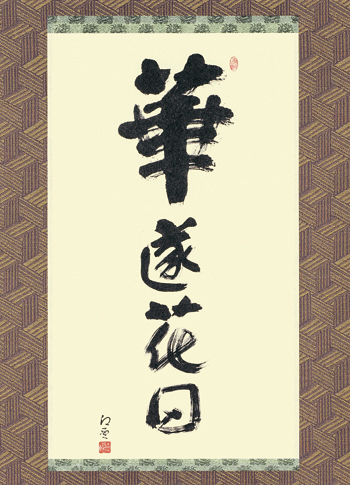 華遂花日